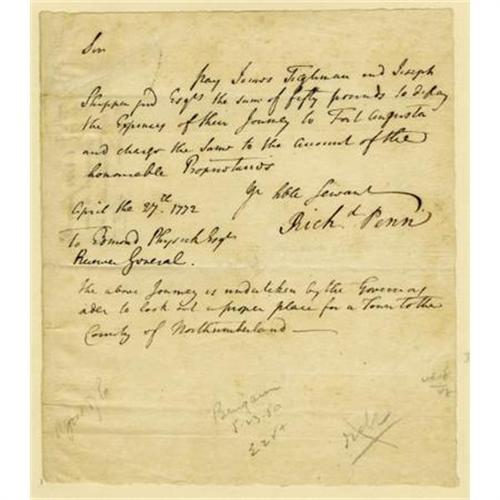 Sir
pay James Tilghman and Joseph
Shippen Jnr Esqrs the sum of fifty pounds to defray
the Expences of their Journey to Fort Augusta
and charge the Same to the Account of the
honourable Proprietaries
Yr hble Servant
April the 27th 1772
Richd Penn
To Edmond Physick Esqr
Receiver General.
The above Journey is undertaken by the Governors
order to look out a proper place for a Town to the
County of Northumberland
Bengamin